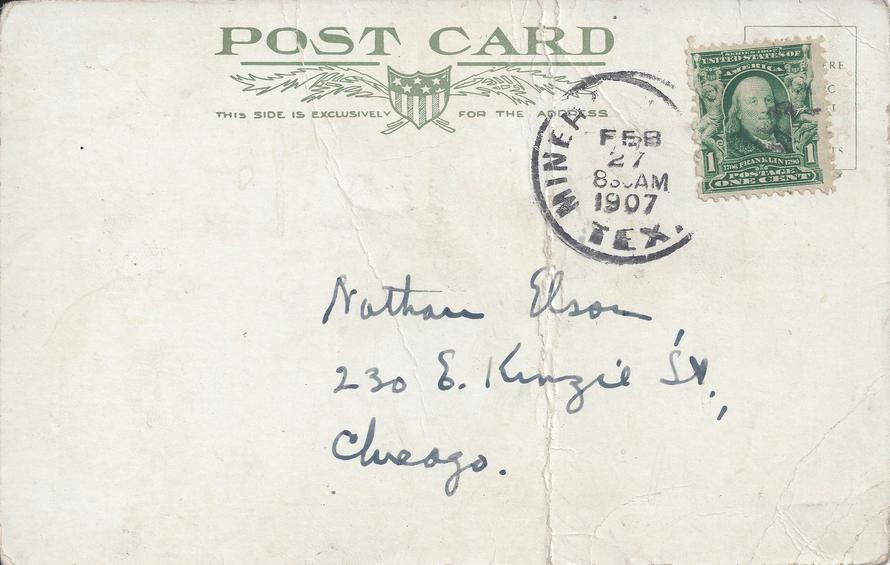 POST CARD
THIS SIDE IS EXCLUSIVELY FOR THE ADDRESS
SERIES 1902
UNITED STATES OF
AMERICA
1 1706 FRANKLIN 1790 1
POSTAGE
ONE CENT
FEB
27
AM
1907
TEX.
Nathan Elson
230 E. Kinzie St.,
Chicago.